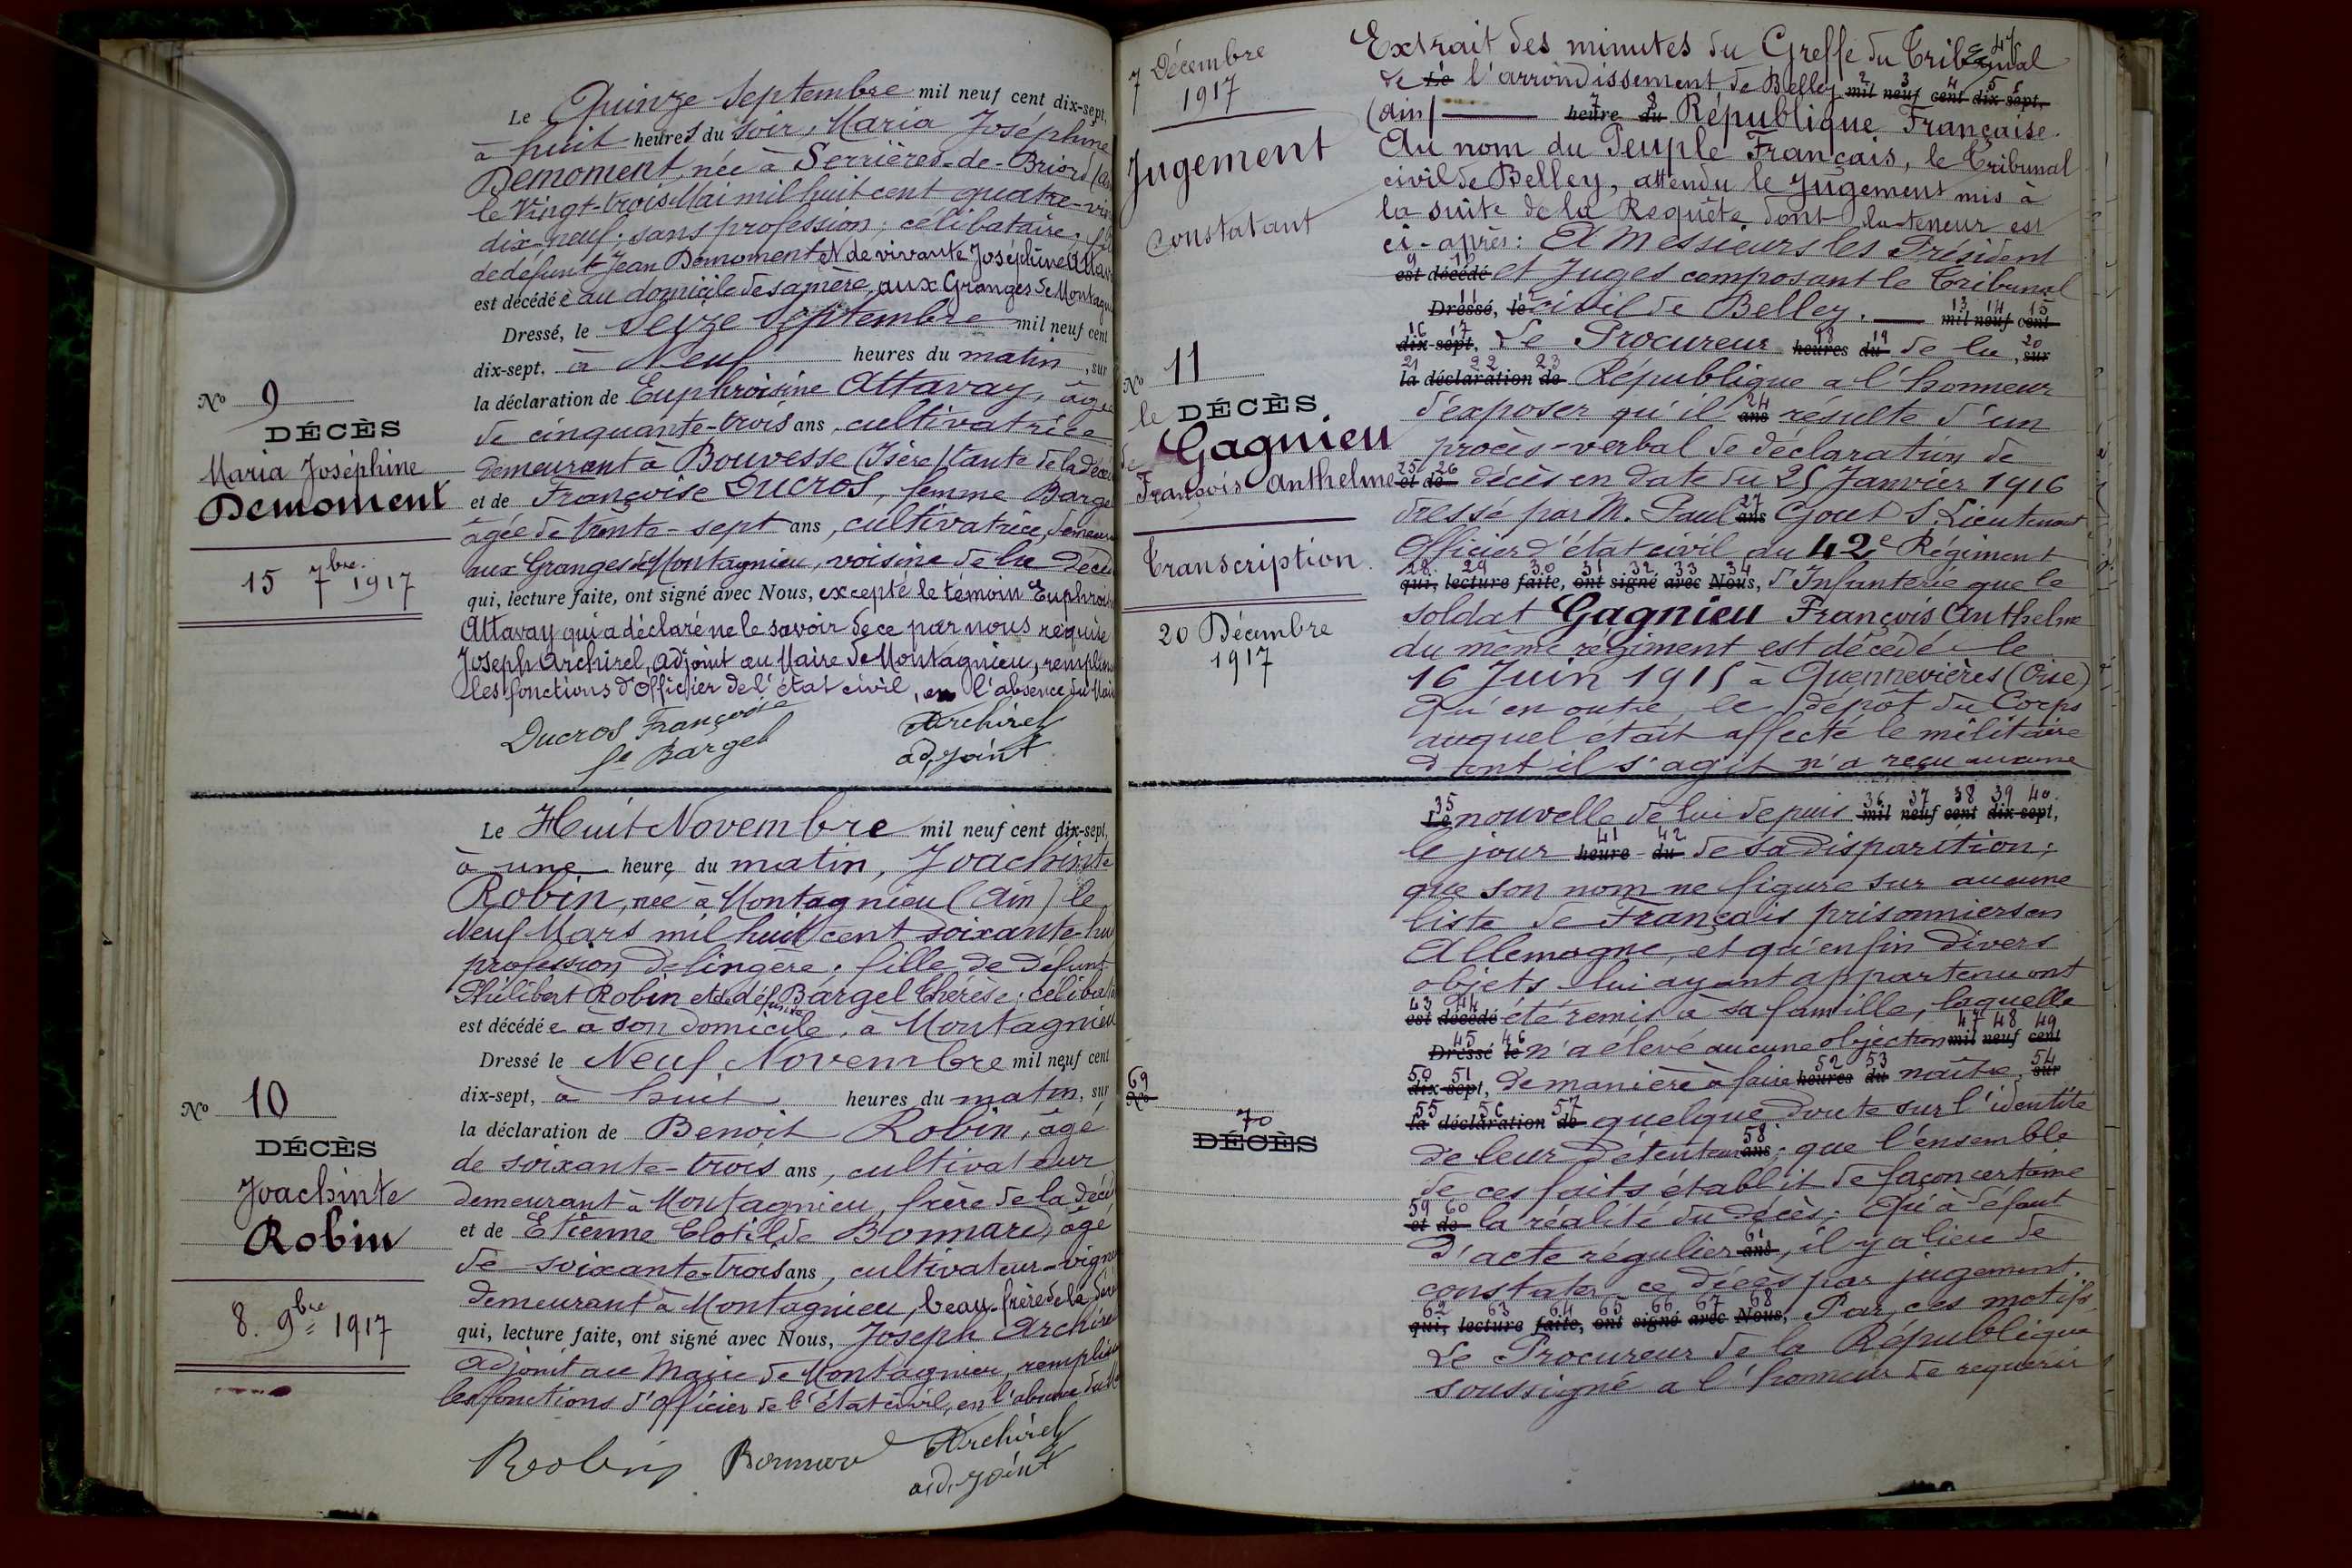 Le Quinze Septembre mil neuf cent dix-sept,
à huit heures du soir, Maria Joséphine
Demoment, née à Serrières-de-Briord
le Vingt-trois Mai mil huit cent quatre-
dix-neuf; sans profession; célibataire;
de défunt Jean Demoment et de vivante Joséphine
est décédée au domicile de sa mère, aux Granges de
Dressé, le Seize Septembre mil neuf cent
dix-sept, à Neuf heures du matin, sur
la déclaration de Euphroisine Attavay,
de cinquante-trois ans, cultivatrice
demeurant à Bouvesse (Isère) tante de la
et de Françoise Ducros, femme
âgée de trente-sept ans, cultivatrice,
aux Granges de Montagnieu, voisine de la
qui, lecture faite, ont signé avec Nous, excepté le témoin
Attavay qui a déclaré ne le savoir de ce par nous requise
Joseph Archirel, adjoint au Maire de Montagnieu,
les fonctions d'Officier de l'état civil, en l'absence du
Ducros Françoise
fe Bargel
Archirel
adjoint
No 9
DÉCÈS
Maria Joséphine
Demoment
15 7bre 1917
Le Huit Novembre mil neuf cent dix-sept,
à une heure du matin, Joachinte
Robin, née à Montagnieu (Ain) le
Neuf Mars mil huit cent soixante-
profession de lingère; fille de défunt
Philibert Robin et de défunte Bargel Thérèse;
est décédée à son domicile, à Montagnieu
Dressé le Neuf Novembre mil neuf cent
dix-sept, à huit heures du matin, sur
la déclaration de Benoit Robin, âgé
de soixante-trois ans, cultivateur
demeurant à Montagnieu, frère de la
et de Etienne Clotilde Bonnard, âgé
de soixante-trois ans, cultivateur-
demeurant à Montagnieu, beau-frère de la
qui, lecture faite, ont signé avec Nous, Joseph
adjoint au Maire de Montagnieu,
les fonctions d'Officier de l'état civil, en l'absence du
Robin Bonnard Archirel
adjoint
No 10
DÉCÈS
Joachinte
Robin
8. 9bre 1917
7 Décembre
1917
Jugement
constatant
No 11
le DÉCÈS
de Gagnieu
François Anthelme
Transcription
20 Décembre
1917
Extrait des minutes du Greffe du Tribunal
de Le l'arrondissement de Belley mil neuf cent dix-sept,
(Ain) heure du République Française.
Au nom du Peuple Français, le Tribunal
civil de Belley, attendu le jugement mis à
la suite de la Requête dont la teneur est
ci-après: A Messieurs les Président
est décédé et Juges composant le Tribunal
Dressé, le civil de Belley. mil neuf cent
dix-sept, Le Procureur heures du de la, sur
la déclaration de République a l'honneur
d'exposer qu'il ans résulte d'un
procès-verbal de déclaration de
et de décès en date du 25 Janvier 1916
dressé par M. Paul ans Gout S. Lieutenant
Officier d'état civil au 42e Régiment
qui, lecture faite, ont signé avec Nous, d'Infanterie que le
soldat Gagnieu François Anthelme
du même régiment est décédé le
16 Juin 1915 à Quennevières (Oise)
Qu'en outre, le dépôt du Corps
auquel était affecté le militaire
dont il s'agit n'a reçu aucune
Le nouvelle de lui depuis mil neuf cent dix-sept,
le jour heure du de sa disparition;
que son nom ne figure sur aucune
liste de Français prisonniers en
Allemagne, et qu'enfin divers
objets lui ayant appartenu ont
est décédé été remis à sa famille, laquelle
Dressé le n'a élevé aucune objection mil neuf cent
dix-sept, de manière à faire heures du naître, sur
la déclaration de quelque doute sur l'identité
de leur détenteur ans; que l'ensemble
de ces faits établit de façon certaine
et de la réalité du décès; Qu'à défaut
d'acte régulier ans, il y a lieu de
constater ce décès par jugement.
qui, lecture faite, ont signé avec Nous, Par ces motifs,
Le Procureur de la République
soussigné a l'honneur de requérir
69
No
70
DÉCÈS